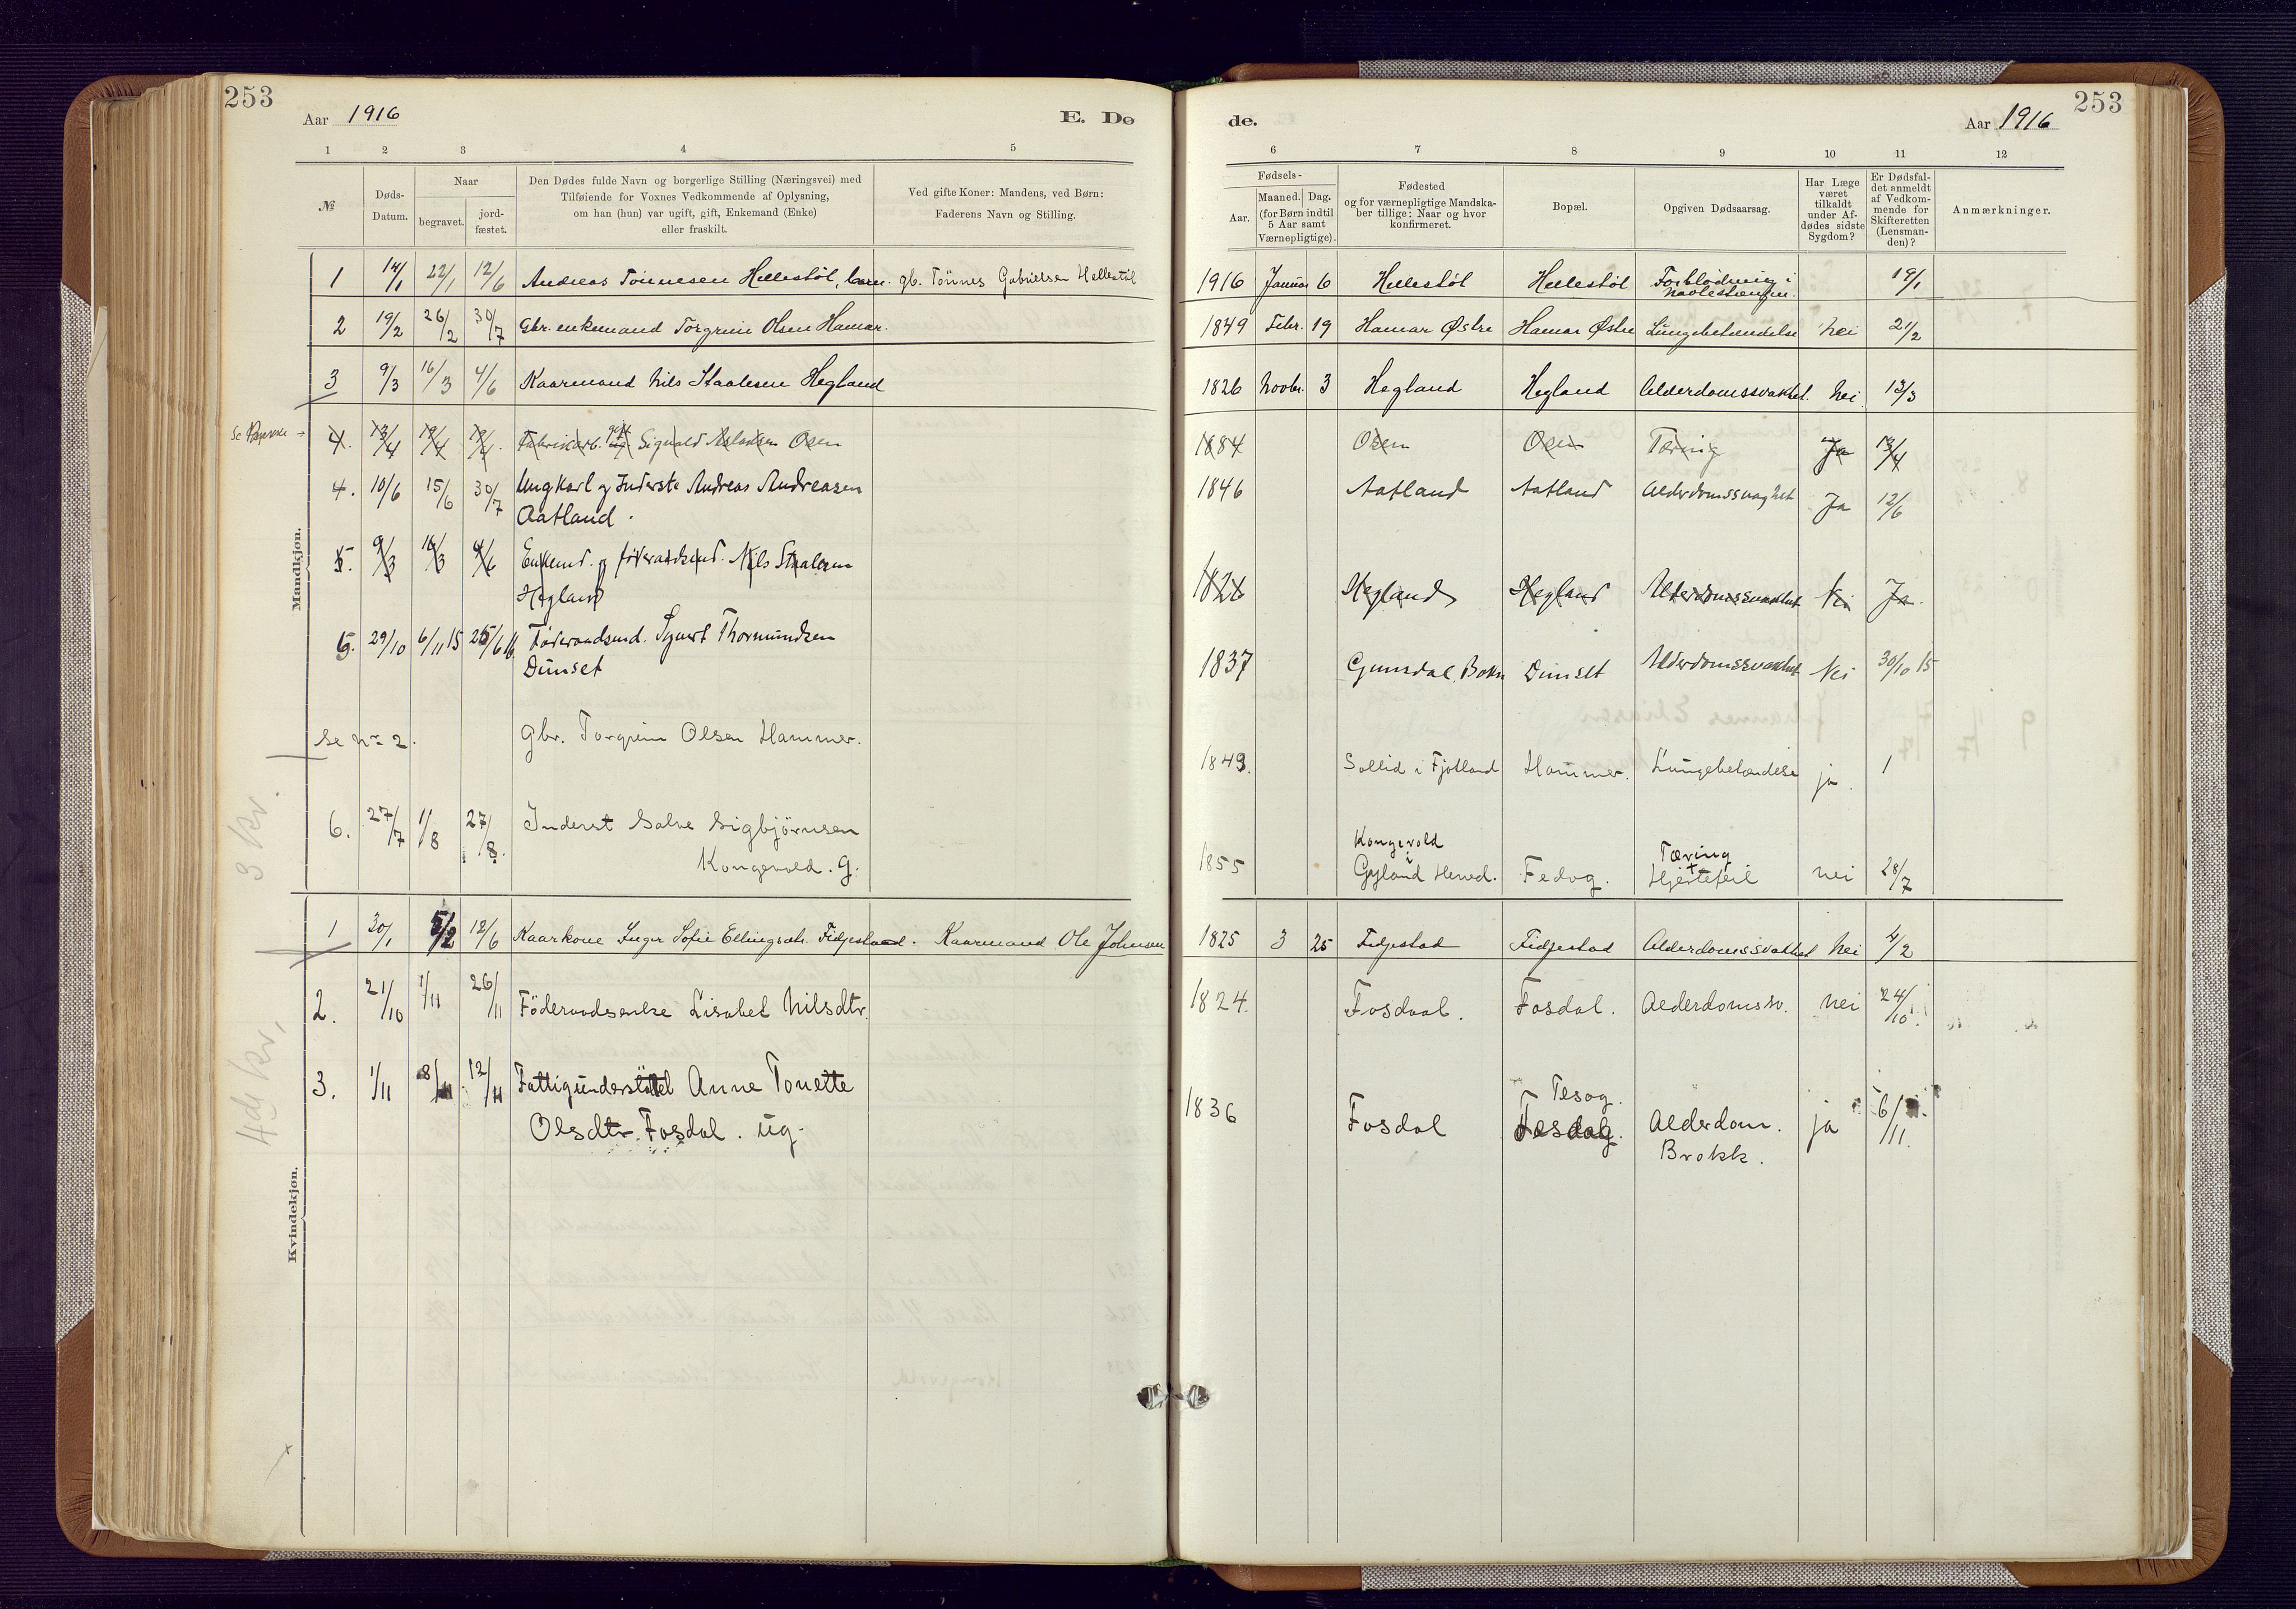 253
Aar 1916
E. Dø
1 2 3 4 5
№
Døds-
Datum.
Naar
begravet.
jord-
fæstet.
Den Dødes fulde Navn og borgerlige Stilling (Næringsvei) med
Tilføiende for Voxnes Vedkommende af Oplysning,
om han (hun) var ugift, gift, Enkemand (Enke)
eller fraskilt.
Ved gifte Koner: Mandens, ved Børn:
Faderens Navn og Stilling.
Mandkjøn.
1 14/1 22/1 12/6 Andreas Tönnesen Hellestöl, barn. gb. Tönnes Gabrielsen Hellestöl
2 19/2 26/2 30/7 Gbr. enkemand Torgrim Olsen Hamar.
3 9/3 16/3 4/6 Kaarmand Nils Staalesen Hegland
4. 13/4 19/4 19/4 Fabrikarb. gift Sigvald Aslaksen Osen
4. 10/6 15/6 30/7 Ungkarl og Inderste Andreas Andreasen
Aatland.
5. 9/3 16/3 4/6 Enkemd. og föderaadsmd. Nils Staalesen
Hegland
5. 29/10 6/11 15 25/6 16 Föderaadsmd. Syvert Thormundsen
Dunset
Se No 2. Gbr. Torgrim Olsen Hammer.
6. 27/7 1/8 27/8. Inderst Salve Sigbjörnsen
Kongevold. G.
3 kr.
4de kr.
Kvindekjøn.
1 30/1 5/2 12/6 Kaarkone Inger Sofie Ellingsdtr. Fidjestad. Kaarmand Ole Johnsen
2. 21/10 1/11 26/11 Föderaadsenke Lisabet Nilsdtr.
3. 1/11 8/11 12/11 Fattigunderstöttet Anne Tonette
Olsdtr. Fosdal. ug.
253
de.
Aar 1916
6 7 8 9 10 11 12
Fødsels-
Aar.
Maaned. Dag.
(for Børn indtil
5 Aar samt
Værnepligtige).
Fødested
og for værnepligtige Mandska-
ber tillige: Naar og hvor
konfirmeret.
Bopæl.
Opgiven Dødsaarsag.
Har Læge
været
tilkaldt
under Af-
dødes sidste
Sygdom?
Er Dødsfal-
det anmeldt
af Vedkom-
mende for
Skifteretten
(Lensman-
den)?
Anmærkninger.
1916 Januar 6 Hellestöl Hellestöl Forblödning i
navlestrengen. 19/1
1849 Febr. 19 Hamar Østre Hamar Østre Lungebetændelse nei 21/2
1826 Novbr. 3 Hegland Hegland Alderdomssvakhet. nei 13/3
1884 Osen Osen Tæring Ja 13/4
1846 Aatland Aatland Alderdomssvaghet Ja 12/6
1826 Hegland Hegland Alderdomssvakhet Nei Ja.
1837 Dunset Alderdomssvakhet Nei 30/10 15
1849. Sollid i Fjotland Hammer. Lungebetændelse ja. 1
Kongevold
1855 i Gyland Herred. Fedog. Tæring
+ Hjertefeil nei 28/7
1825 3 25 Fidjestad Fidjestad Alderdomssvakhet nei 4/2
1824. Fosdaal. Fosdal. Alderdomssv. nei 24/10.
Tesog.
1836 Fosdal Alderdom. ja 6/11.
Brokk.